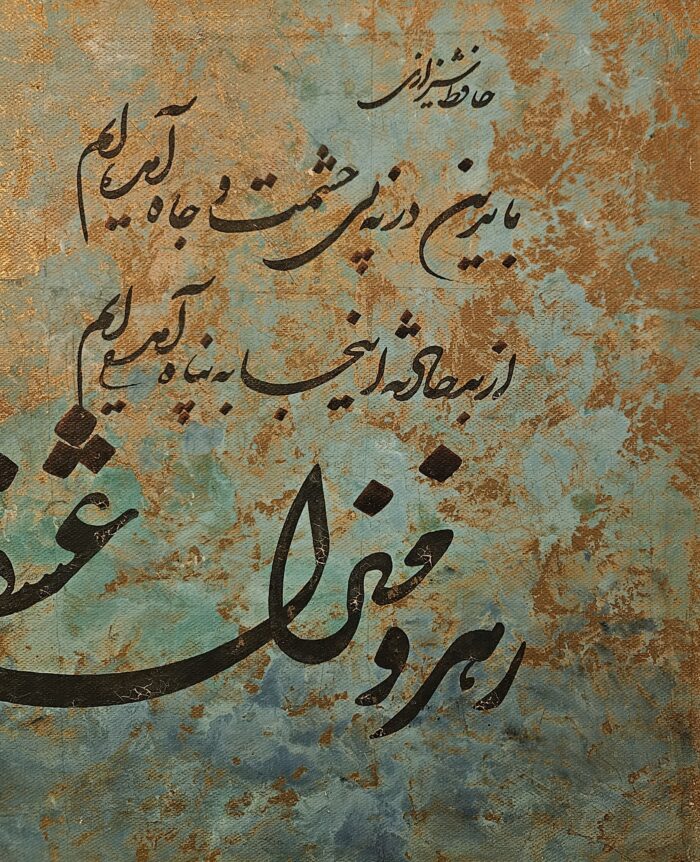 حافظ شیرازی
ما بدین در نه پی حشمت و جاه آمده‌ایم
از بد حادثه اینجا به پناه آمده‌ایم
رهرو منزل عشق